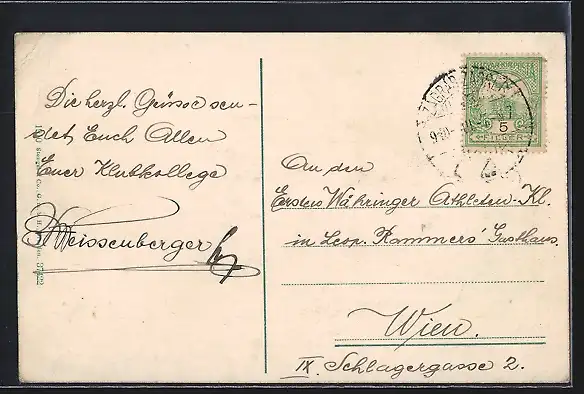 Die herzl. Grüsse sen-
det Euch Allen
Euer Klubkollege
Weissenberger
An den
Ersten Währinger Athleten-Kl.
in Leop. Rammers' Gasthaus
Wien.
IX. Schlagergasse 2.
5
FILLÉR